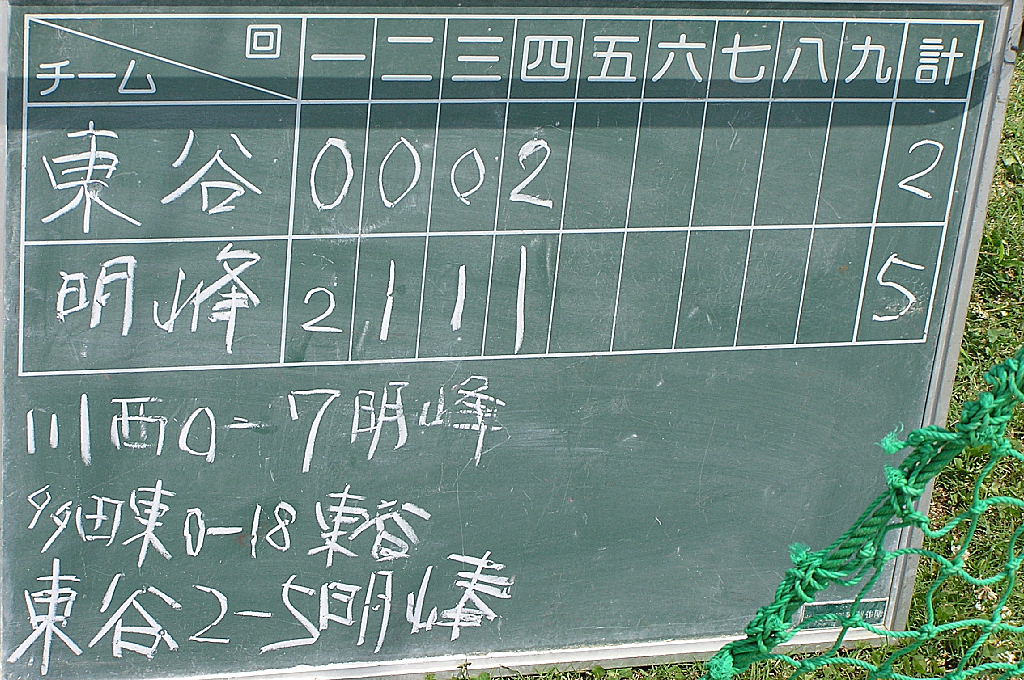 回 一 二 三 四 五 六 七 八 九 計
チーム
東谷 0 0 0 2 2
明峰 2 1 1 1 5
川西 0-7 明峰
多田東 0-18 東谷
東谷 2-5 明峰